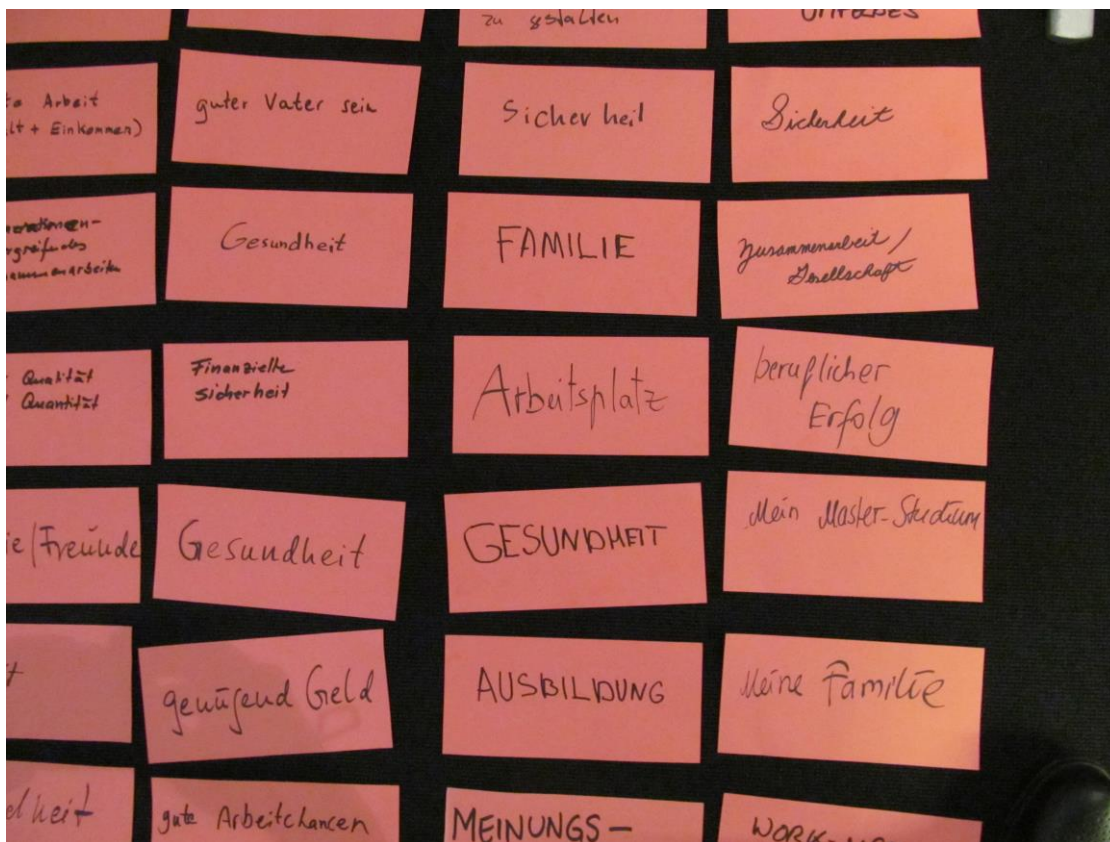 zu gestalten
UMFELDES
Arbeit
+ Einkommen)
guter Vater sein
Sicherheit
Sicherheit
Gesundheit
FAMILIE
Zusammenarbeit /
Gesellschaft
Qualität
Quantität
Finanzielle
sicherheit
Arbeitsplatz
beruflicher
Erfolg
/Freunde
Gesundheit
GESUNDHEIT
Mein Master-Studium
genügend Geld
AUSBILDUNG
Meine Familie
heit
gute Arbeitchancen
MEINUNGS-